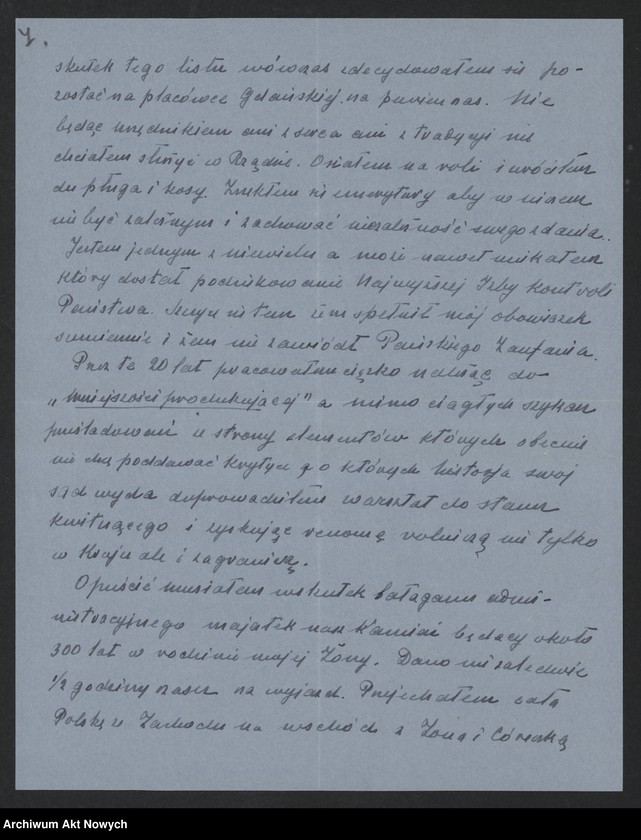 y.
skutek tego listu wówczas zdecydowałem się po-
zostać na placówce Gdańskiej na pewien czas. Nie
będąc urzędnikiem ani z serca ani z tradycji nie
chciałem służyć w Rządzie. Osiałem na roli i wróciłem
do pługa i kosy. Zrzekłem się emerytury aby w niczem
nie być zależnym i zachować niezależność swego zdania.
Jestem jednym z niewielu a może nawet unikatem
który dostał podziękowanie Najwyższej Izby Kontroli
Państwa. Szczycę się tem żem spełnił mój obowiązek
sumiennie i żem nie zawiódł Pańskiego Zaufania.
Przez te 20 lat pracowałem ciężko należąc do
„mniejszości produkującej" a mimo ciągłych szykan
prześladowań ze strony elementów których obecnie
nie chcę poddawać krytyce a o których historja swój
sąd wyda doprowadziłem warsztat do stanu
kwitnącego i zyskując renomę rolniczą nie tylko
w Kraju ale i zagranicą.
Opuścić musiałem wskutek bałaganu admi-
nistracyjnego majątek nasz Kamień będący około
300 lat w rodzinie mojej Żony. Dano mi zaledwie
1/2 godziny czasu na wyjazd. Przejechałem całą
Polskę ze Zachodu na wschód z Żoną i Córeczką
Archiwum Akt Nowych